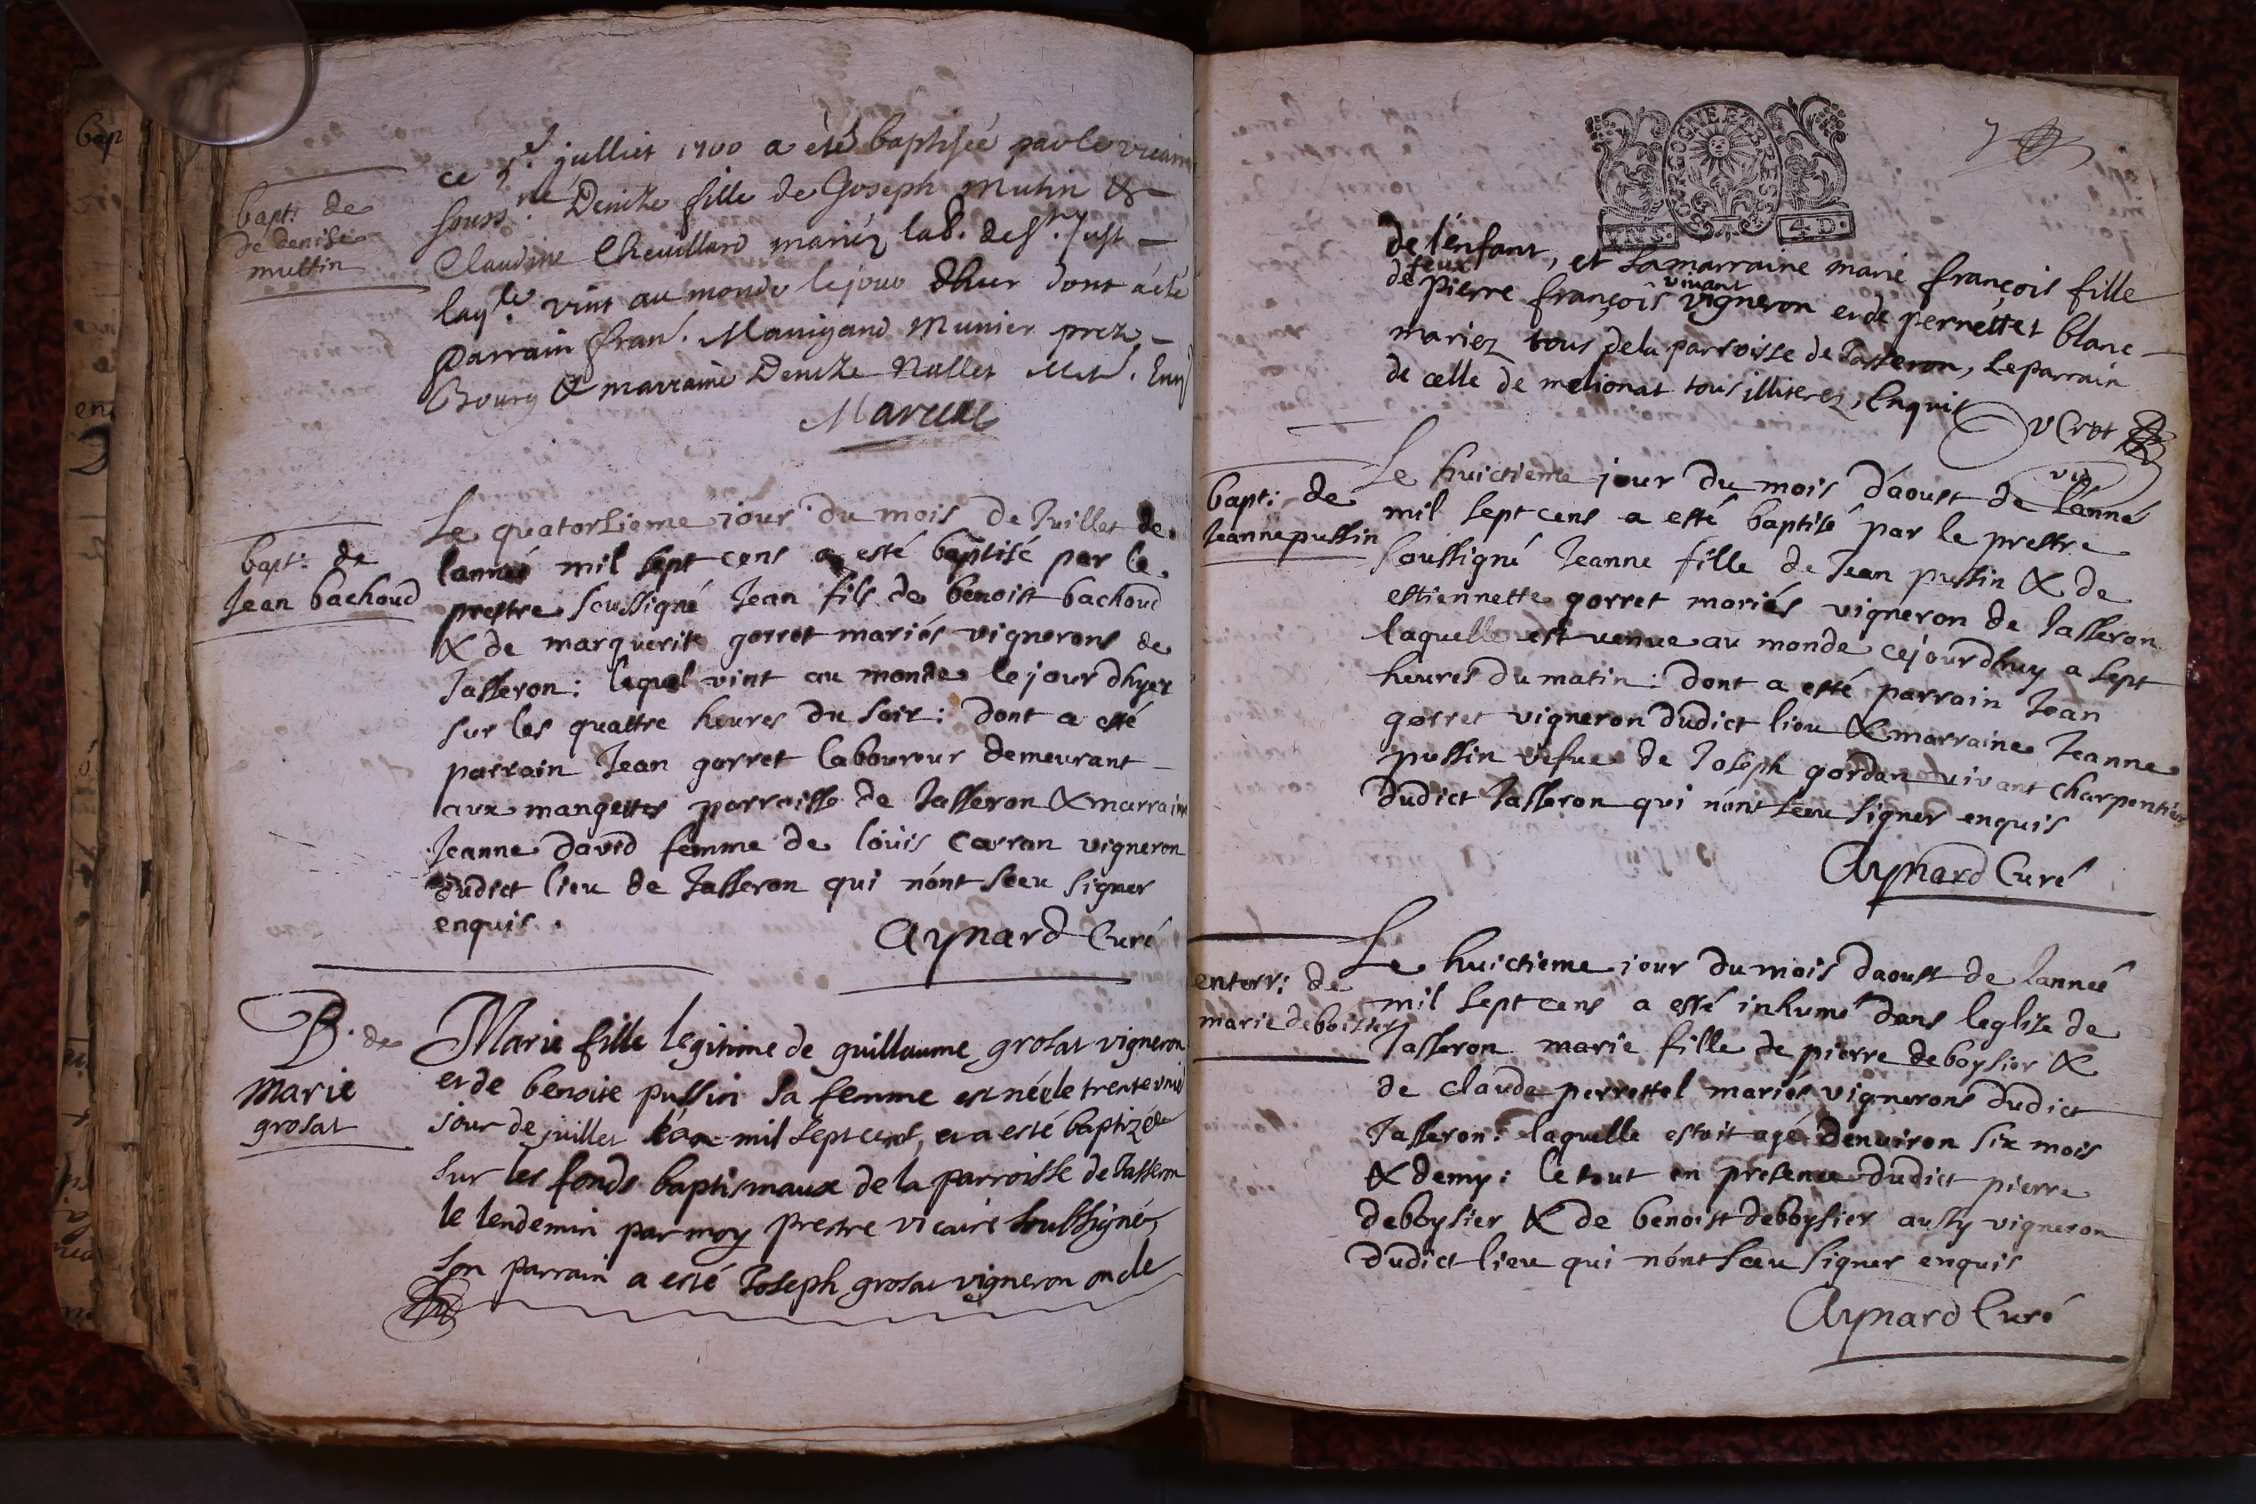 bapt: de
de denise
muttin
ce 5.e julliet 1700 a eté baptisée par le vicaire
souss.né Denize fille de Joseph Mutin &
Claudine Chevillard mariéz lab. de St. Just
laq.le vint au monde le jour dhier dont a été
parrain fran. Manigand Munier prez
Bourg & marraine Denize Nallet
Bapt: de
Jean bachoud
Le quatorsieme jour du mois de Juillet de
lannéé mil sept cens a esté baptisé par le
prestre soussigné Jean fils de benoist bachoud
& de marguerite gorret mariés vignerons de
Jasseron: lequel vint au monde le jour dhyer
sur les quattre heures du soir: dont a esté
parrain Jean gorret laboureur demeurant
aux mangettes parroisse de Jasseron & marraine
Jeanne david femme de loüis carran vigneron
dudict lieu de Jasseron qui nónt sceu signer
enquis.
Aynard Curé
B. de
Marie
grosat
Marie fille legitime de guillaume grosat vigneron
et de benoite pussin sa femme est néé le trente unie
jour de juillet mil sept cent, et a esté baptizéé
sur les fonds baptismaux de la parroisse de Jasseron
le lendemin par moy prestre vicaire soubsigné,
son parrain a esté Joseph grosat vigneron oncle
BOURGOGNE ET BRESSE
VN S.
4 D.
de lénfant, et la marraine marie françois fille
de feux pierre françois vivant vigneron et de perrettet blanc
mariez tous de la parroisse de Jasseron, le parrain
de celle de melionat tous illiterez, Enquis
DuCrot
Bapt: de
Jeanne pussin
Le huictieme jour du mois dáoust de lánné
mil sept cens a esté baptisé par le prestre
soussigné Jeanne fille de Jean pussin & de
estiennette gorret mariés vigneron de Jasseron
laquelle est venue au monde cejourdhuy a sept
heures du matin: dont a esté parrain Jean
gorret vigneron dudict lieu & marraine Jeanne
pussin vefue de Joseph gordan vivant charpentier
dudict Jasseron qui nónt sceu signer enquis
Aynard Curé
enterr: de
marie deboisier
Le huictieme jour du mois daoust de lannéé
mil sept cens a esté inhumé dans leglize de
Jasseron marie fille de pierre deboysier &
de claude perrettel mariés vignerons dudict
Jasseron: laquelle estoit agé denuiron six mois
& demy: le tout en presence dudict pierre
deboysier & de benoist deboysier aussy vigneron
dudict lieu qui nónt sceu signer enquis
Aynard Curé